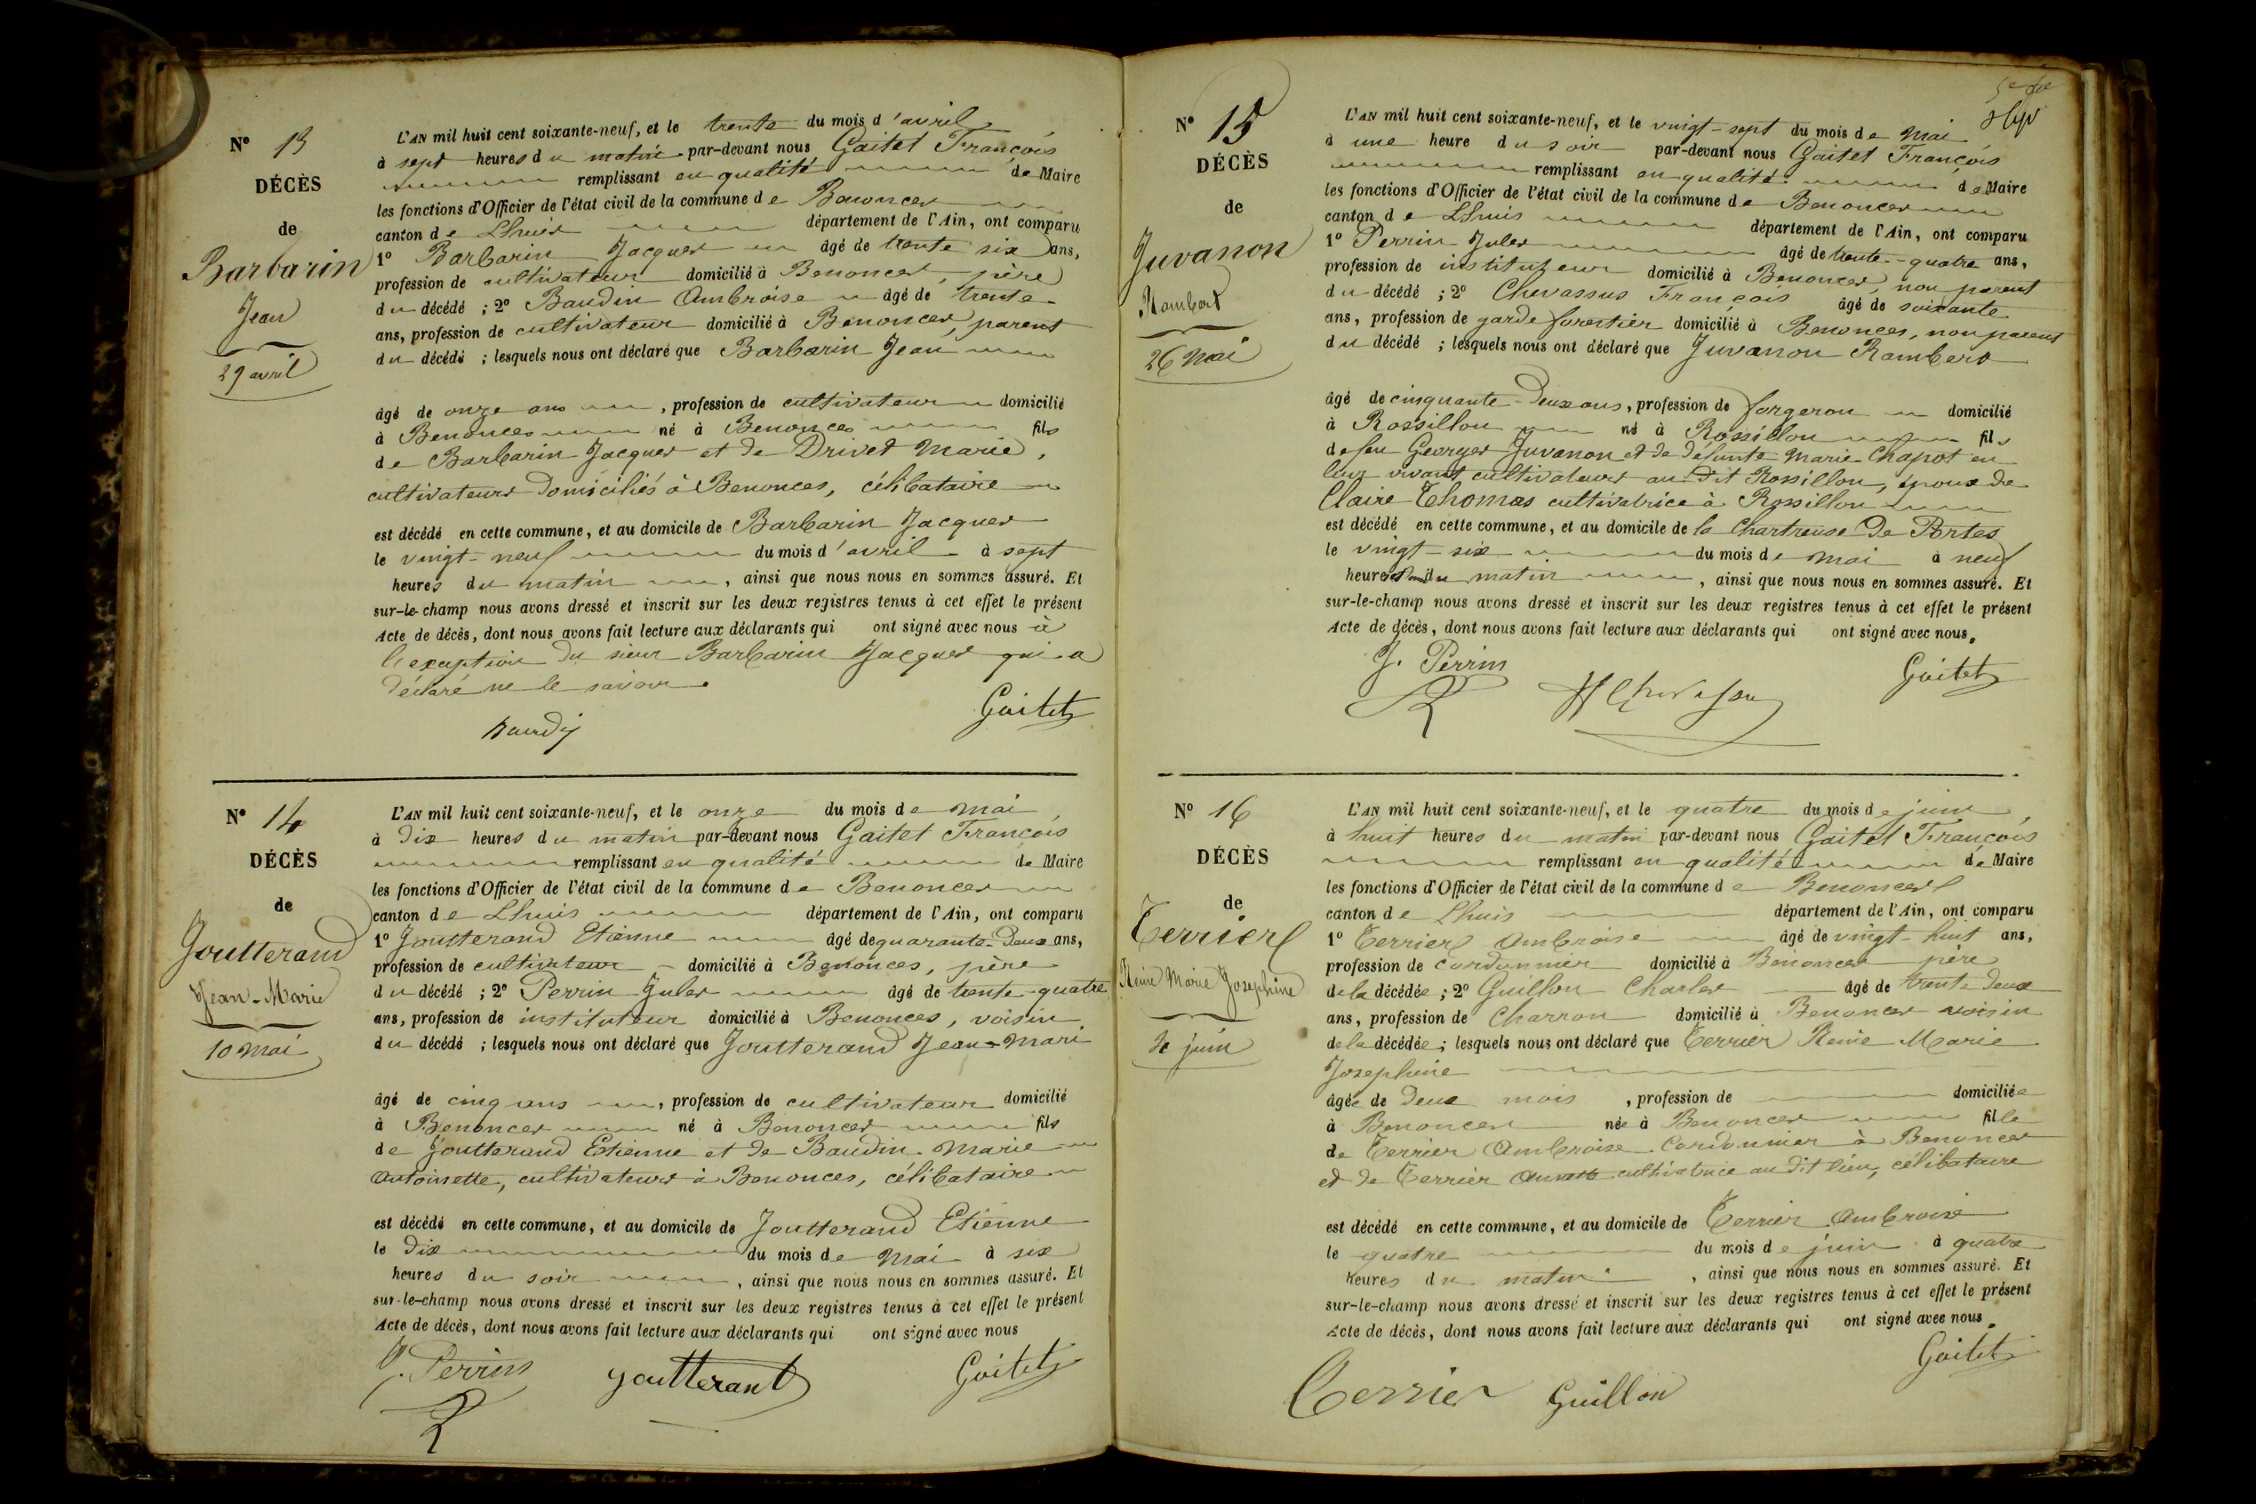 N° 13
DÉCÈS
de
Barbarin
Jean
29 avril
L'AN mil huit cent soixante-neuf, et le trente du mois d'avril
à sept heures du matin par-devant nous Gaitet François
remplissant en qualité de Maire
les fonctions d'Officier de l'état civil de la commune de Benonces
canton de Lhuis département de l'Ain, ont comparu
1° Barbarin Jacques âgé de trente six ans,
profession de cultivateur domicilié à Benonces, père
du décédé ; 2° Baudin Ambroise âgé de trente
ans, profession de cultivateur domicilié à Benonces, parent
du décédé ; lesquels nous ont déclaré que Barbarin Jean
âgé de onze ans , profession de cultivateur domicilié
à Benonces né à Benonces fils
de Barbarin Jacques et de Drivet Marie,
cultivateurs domiciliés à Benonces, célibataire
est décédé en cette commune, et au domicile de Barbarin Jacques
le vingt-neuf du mois d'avril à sept
heures du matin , ainsi que nous nous en sommes assuré. Et
sur-le-champ nous avons dressé et inscrit sur les deux registres tenus à cet effet le présent
Acte de décès, dont nous avons fait lecture aux déclarants qui ont signé avec nous à
l'exception du sieur Barbarin Jacques qui a
déclaré ne le savoir.
Baudin Gaitet
N° 14
DÉCÈS
de
Joutterand
Jean-Marie
10 mai
L'AN mil huit cent soixante-neuf, et le onze du mois de mai
à dix heures du matin par-devant nous Gaitet François
remplissant en qualité de Maire
les fonctions d'Officier de l'état civil de la commune de Benonces
canton de Lhuis département de l'Ain, ont comparu
1° Joutterand Etienne âgé de quarante-deux ans,
profession de cultivateur domicilié à Benonces, père
du décédé ; 2° Perrin Jules âgé de trente-quatre
ans, profession de instituteur domicilié à Benonces, voisin
du décédé ; lesquels nous ont déclaré que Joutterand Jean-Mari
âgé de cinq ans , profession de cultivateur domicilié
à Benonces né à Benonces fils
de Joutterand Etienne et de Baudin Marie
Antoinette, cultivateurs à Benonces, célibataire
est décédé en cette commune, et au domicile de Joutterand Etienne
le dix du mois de mai à six
heures du soir , ainsi que nous nous en sommes assuré. Et
sur-le-champ nous avons dressé et inscrit sur les deux registres tenus à cet effet le présent
Acte de décès, dont nous avons fait lecture aux déclarants qui ont signé avec nous
J. Perrin Joutterant Gaitet
N° 15
DÉCÈS
de
Juvanon
Rambert
26 mai
L'AN mil huit cent soixante-neuf, et le vingt-sept du mois de mai
à une heure du soir par-devant nous Gaitet François
remplissant en qualité de Maire
les fonctions d'Officier de l'état civil de la commune de Benonces
canton de Lhuis département de l'Ain, ont comparu
1° Perrin Jules âgé de trente-quatre ans,
profession de instituteur domicilié à Benonces, non parent
du décédé ; 2° Chevassus François âgé de soixante
ans, profession de garde forestier domicilié à Benonces, non parent
du décédé ; lesquels nous ont déclaré que Juvanon Rambert
âgé de cinquante-deux ans, profession de forgeron domicilié
à Rossillon né à Rossillon fils
de feu Georges Juvanon et de défunte Marie Chapot en
leur vivant cultivateurs au dit Rossillon, époux de
Claire Thomas cultivatrice à Rossillon
est décédé en cette commune, et au domicile de la Chartreuse de Portes
le vingt-six du mois de mai à neuf
heures du matin , ainsi que nous nous en sommes assuré. Et
sur-le-champ nous avons dressé et inscrit sur les deux registres tenus à cet effet le présent
Acte de décès, dont nous avons fait lecture aux déclarants qui ont signé avec nous.
J. Perrin Gaitet
N° 16
DÉCÈS
de
Terrier
Reine Marie Josephine
4 juin
L'AN mil huit cent soixante-neuf, et le quatre du mois de juin
à huit heures du matin par-devant nous Gaitet François
remplissant en qualité de Maire
les fonctions d'Officier de l'état civil de la commune de Benonces
canton de Lhuis département de l'Ain, ont comparu
1° Terrier Ambroise âgé de vingt-huit ans,
profession de cordonnier domicilié à Benonces père
de la décédée ; 2° Guillon Charles âgé de trente deux
ans, profession de Charron domicilié à Benonces voisin
de la décédée ; lesquels nous ont déclaré que Terrier Reine Marie
Josephine
âgée de deux mois , profession de domiciliée
à Benonces née à Benonces fille
de Terrier Ambroise Cordonnier à Benonces
et de Terrier cultivatrice au dit lieu, célibataire
est décédé en cette commune, et au domicile de Terrier Ambroise
le quatre du mois de juin à quatre
heures du matin , ainsi que nous nous en sommes assuré. Et
sur-le-champ nous avons dressé et inscrit sur les deux registres tenus à cet effet le présent
Acte de décès, dont nous avons fait lecture aux déclarants qui ont signé avec nous.
Terrier Guillon Gaitet